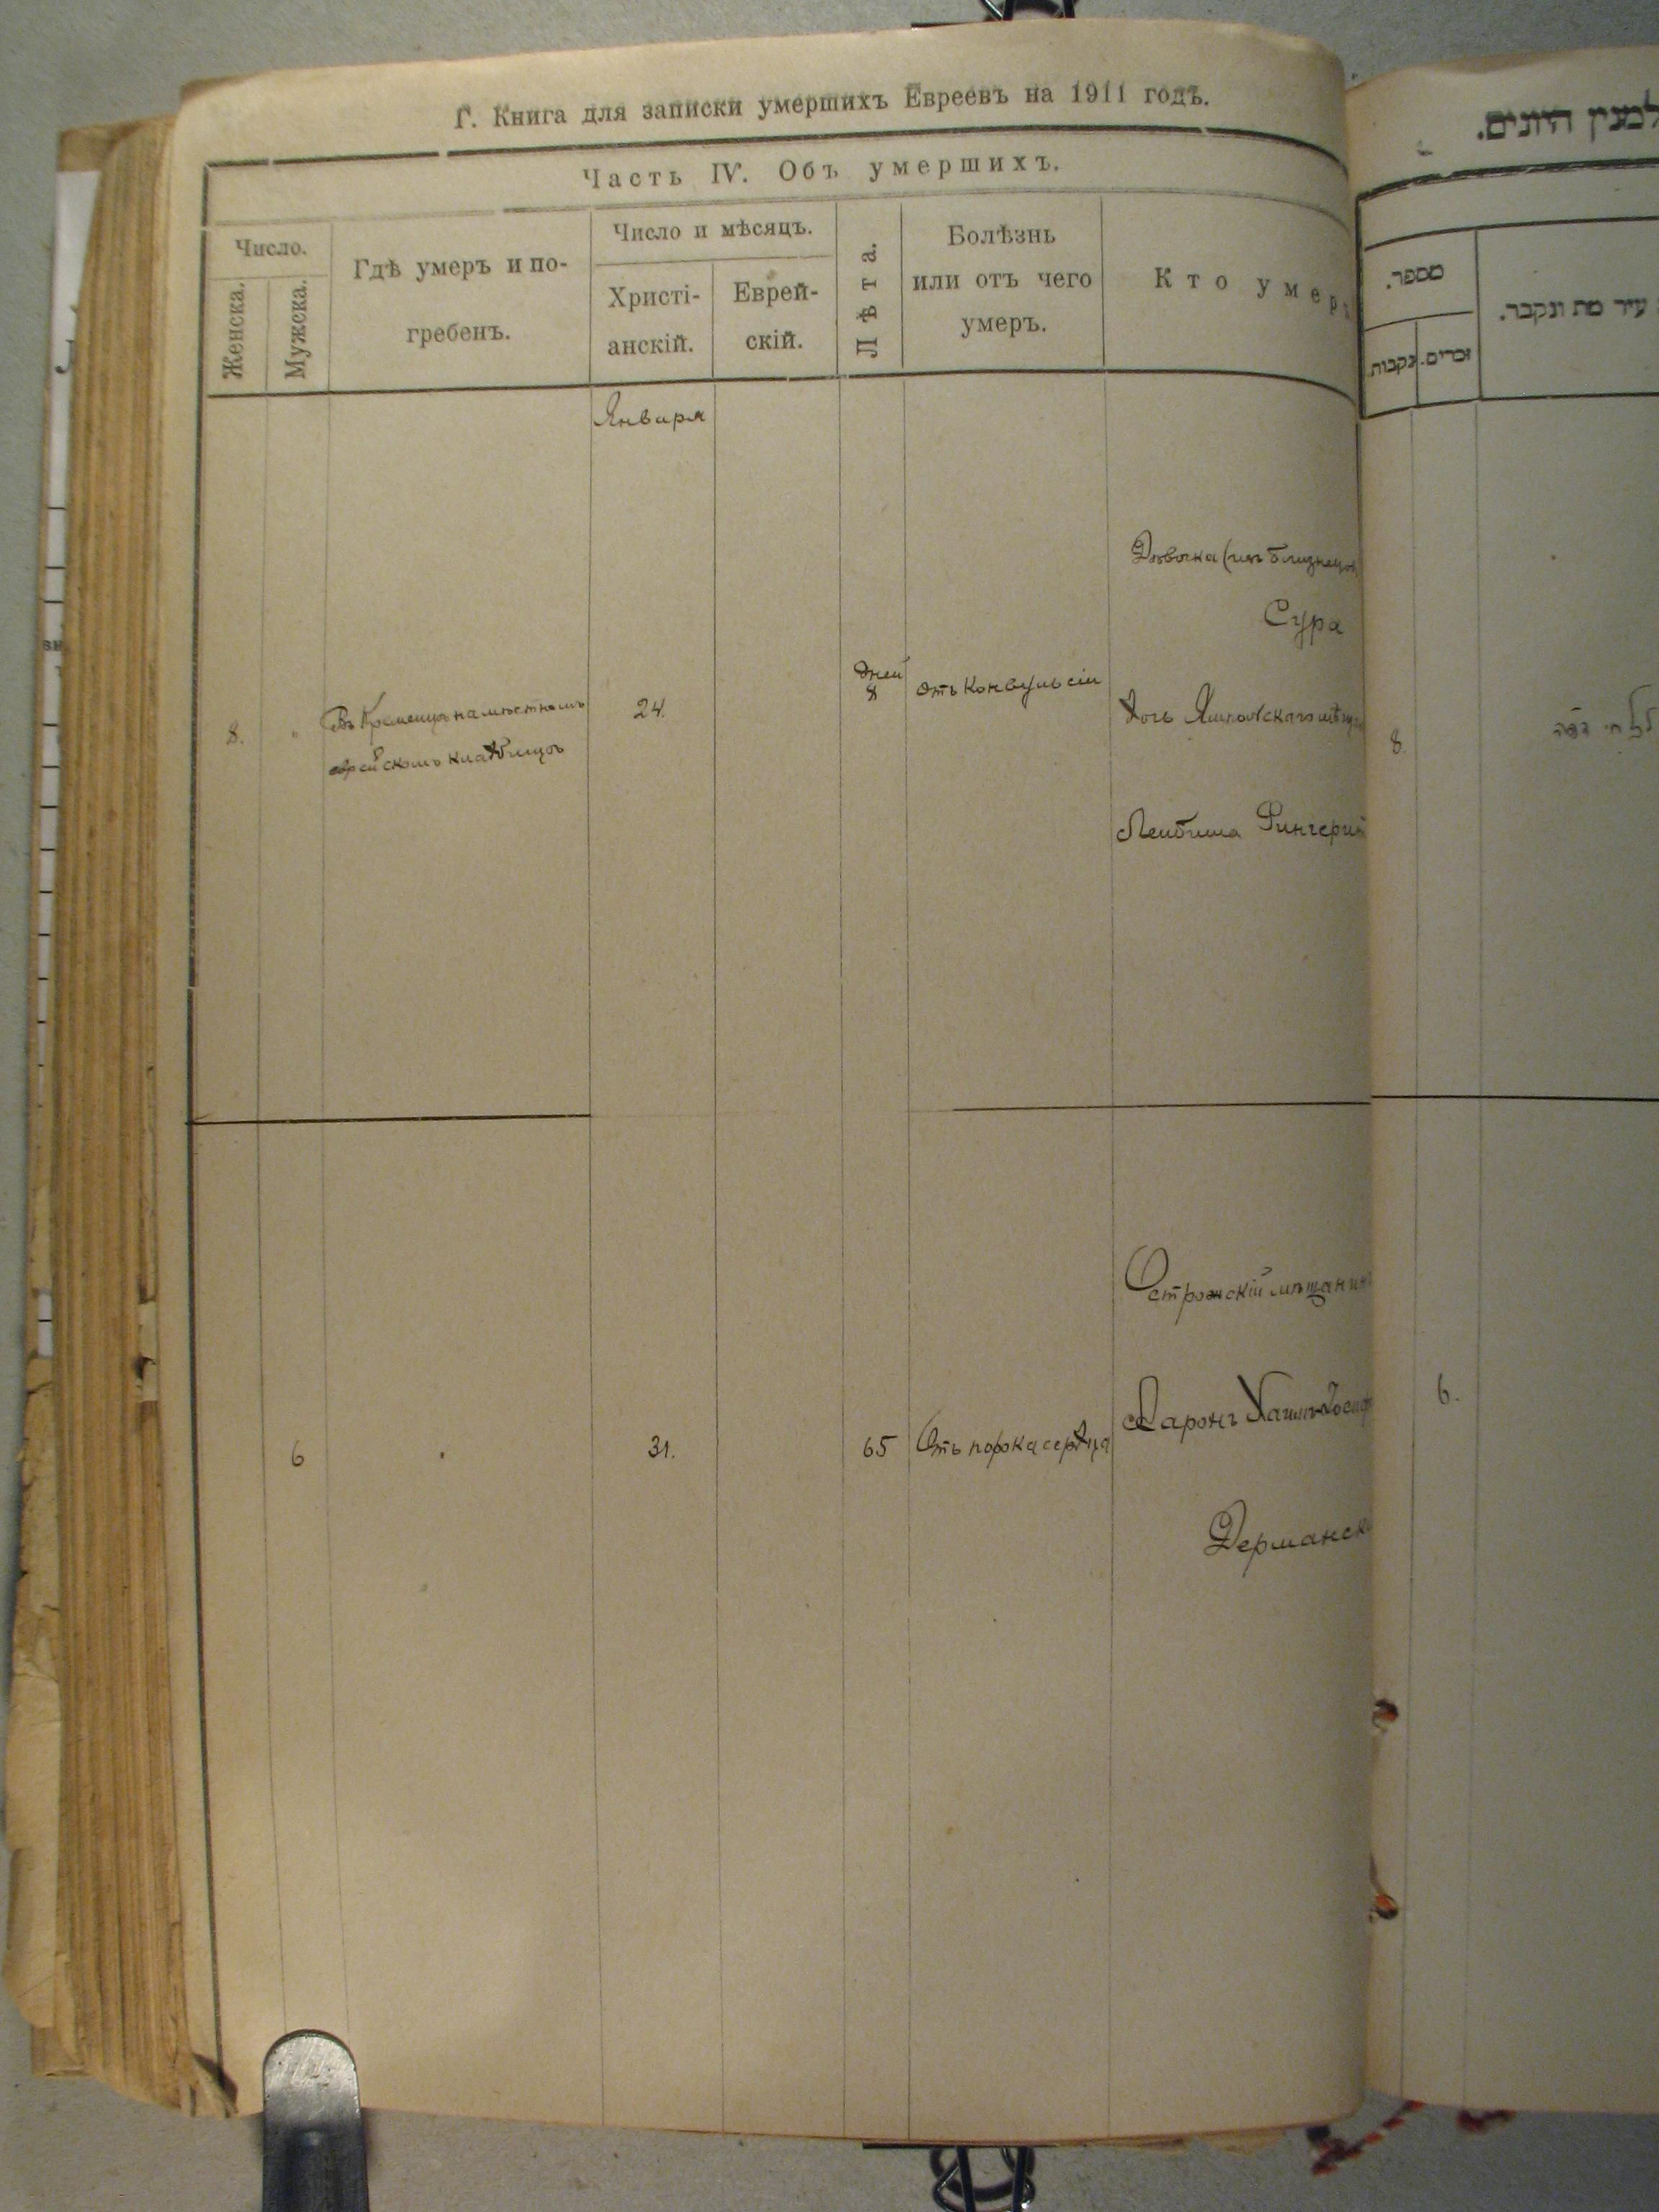 Г. Книга для записки умершихъ Евреевъ на 1911 годъ.
Часть IV. Объ умершихъ.
Число.
Женска.
Мужска.
Гдѣ умеръ и по-
гребенъ.
Число и мѣсяцъ.
Христі-
анскій.
Еврей-
скій.
Лѣта.
Болѣзнь
или отъ чего
умеръ.
Кто умеръ
Января
8.
Въ Кременцѣ на мѣстномъ
еврейскомъ кладбищѣ
24.
дней
8
отъ конвульсіи
Дѣвочка (изъ близнецов
Сура
дочь
Лейбиша
6
31.
65
Отъ порока сердца
Острожскій мѣщанин
Ааронъ Хаимъ
Дерманск
למנין היונים.
מספר.
נקבות.
זכרים.
עיר מת ונקבר.
8.
6.